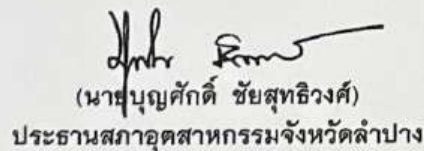 (นายบุญศักดิ์ ชัยสุทธิวงศ์)
ประธานสภาอุตสาหกรรมจังหวัดลำปาง